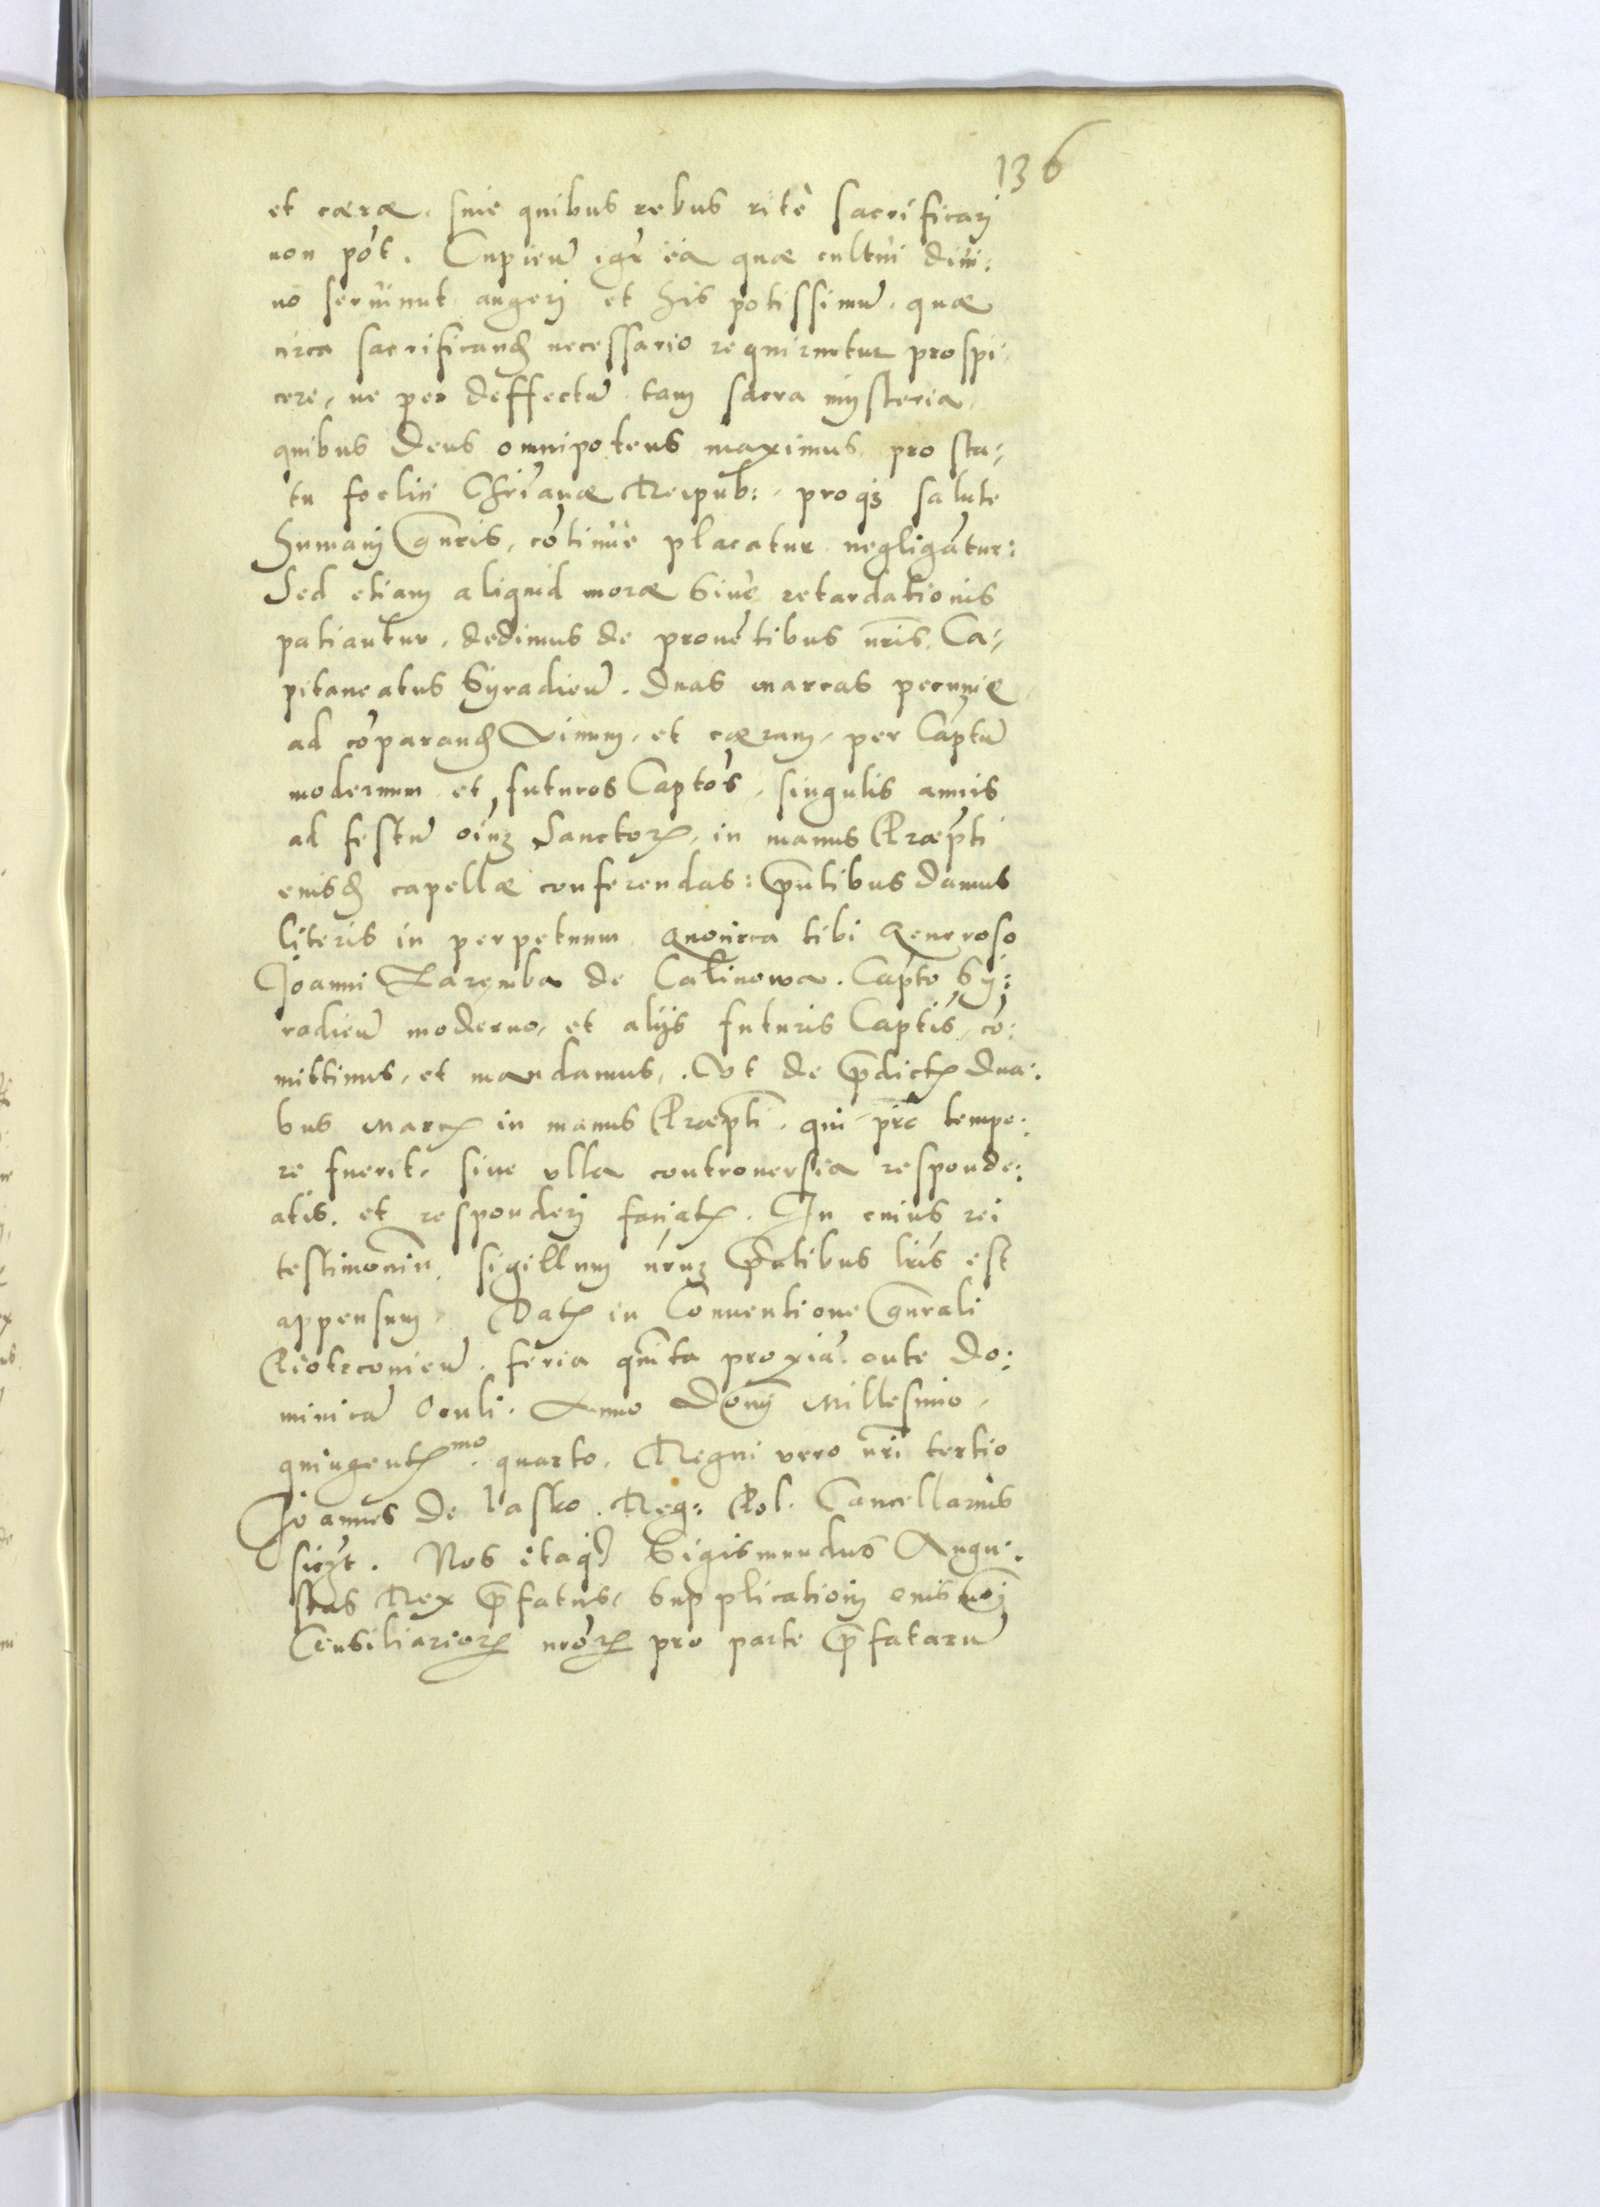 136
et caera. sine quibus rebus rite sacrificarj
non pót. Cupien̄ igr̄ ea quae cultui diui:
no seruiunt augerj et his potissimū. quae
circa sacrificand̄ necessario requiruntur prospi
cere, ne per deffectū tam sacra mysteria,
quibus Deus omnipotens maximus pro sta,
tu foelici Chr̄ianae Reipub: proq3 salute
humanj gn̄ris, cōtinue placatur negligātur:
Sed etiam aliquid morae siue retardationis
patiantur. dedimus de prouētibus nr̄is. Ca,
pitaneatus Syradien̄. Duas marcas pecuniae
ad cōparand̄ vinum, et caeram, per Captū
modernum et futuros Captōs, singulis annis
ad festū oīuz Sanctorꝝ, in manus Praepti
eiusd̄ capellae conferendas: pn̄tibus damus
literis in perpetuum Quocirca tibi Generoso
Joanni Zaremba de Calinowa. Capto Sy:
radien̄ moderno, et alijs futuris Captis, cō:
mittimus, et mandamus, Vt de p̄dictꝭ dua:
bus marcꝭ in manus Praepti. qui pr̄o tempo:
re fuerit, sine vlla controuersia responde:
atis. et responderj faciatꝭ. In cuius rei
testimoniū sigillum nr̄uz pn̄tibus lr̄is est
appensum. Datꝭ in Conuentione gn̄rali
Piotrconien̄. feria quinta proxiā. ante Do:
minicā Oculi. Anno Dōnj Millesimo,
quingentꝭmo. quarto. Regni vero nr̄i tertio
Joannes de Lasko. Reg: Pol. Cancellarius
sścpt. Nos itaq3 Sigismundus Augu:
stus Rex p̄fatus, supplicationj eiusmōj
Consiliariorꝝ nr̄orꝝ pro parte p̄fatarū